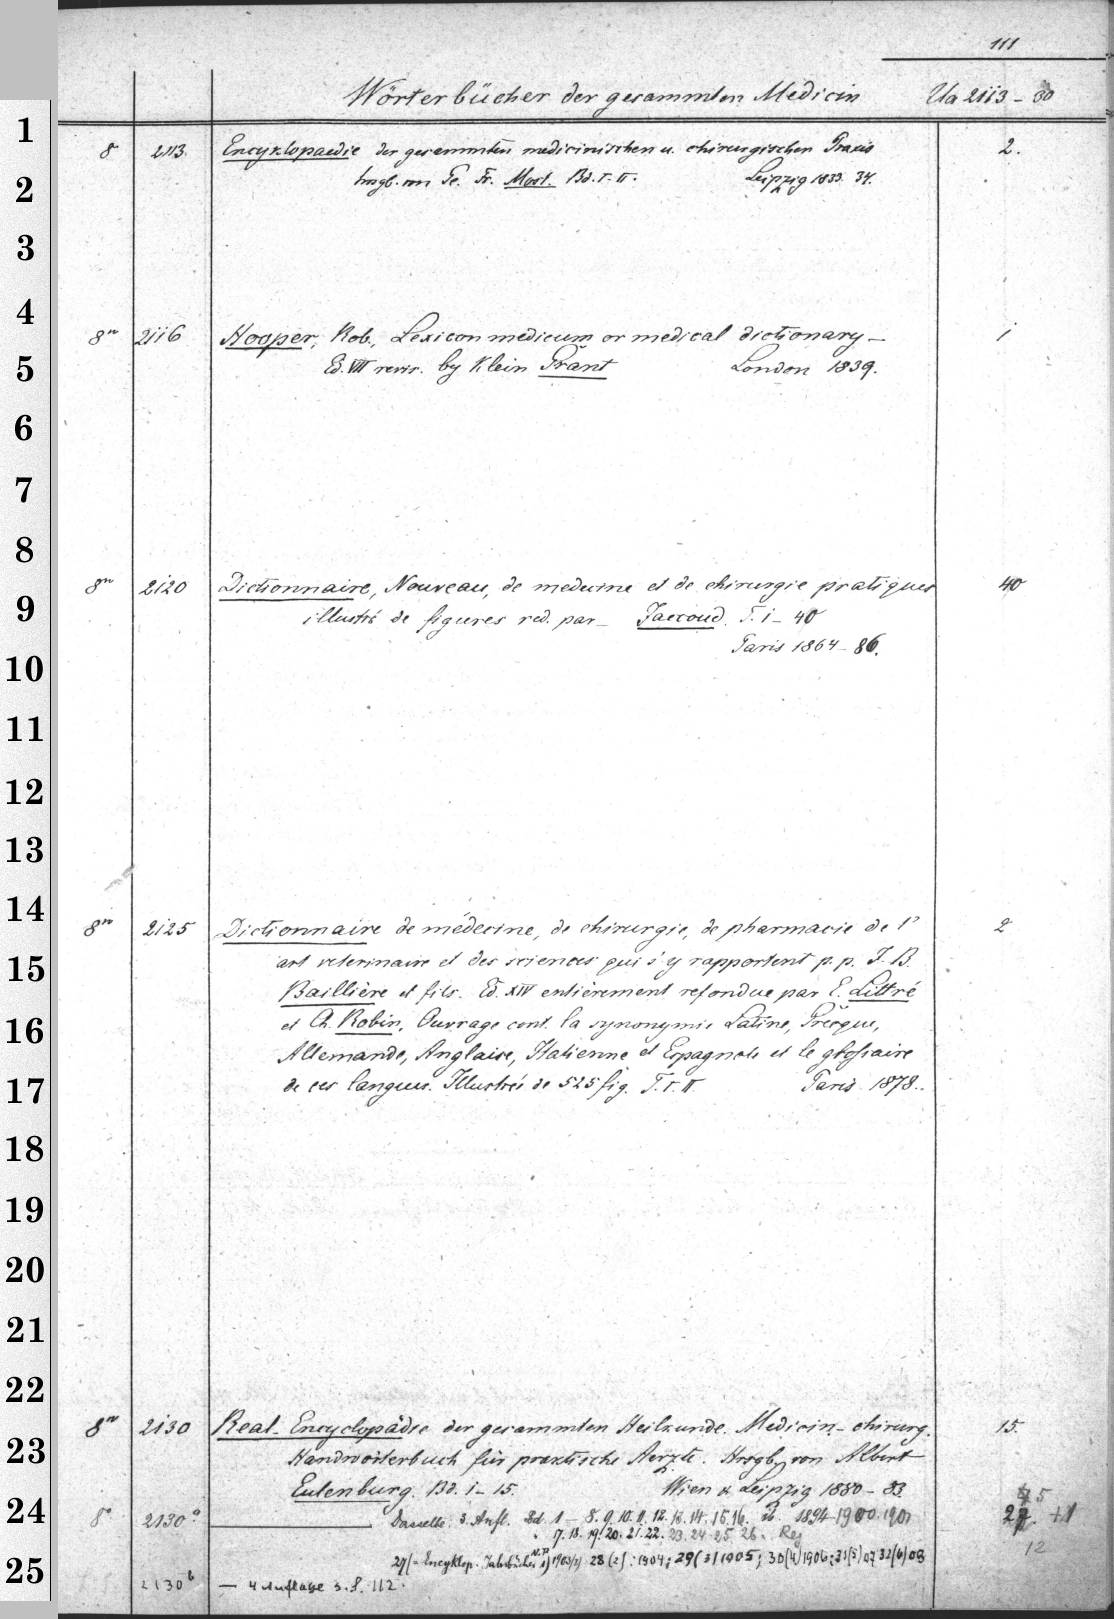 111
Wörterbücher der gesammten Medicin Ua 2113 - 30
1
8 2113. Encyklopaedie der gesammten medicinischen u. chirurgischen Praxis 2.
2
hrsgb. von Ge. Fr. Most. Bd. I. II. Leipzig 1833. 34.
3
4
8º 2116 Hooper, Rob., Lexicon medicum or medical dictionary - 1
5
Ed. VII revis. by Klein Grant London 1839.
6
7
8
8º 2120 Dictionnaire, Nouveau, de medecine et de chirurgie pratiques 40
9
illustré de figures red. par - Jaccoud. T. 1 - 40
10
Paris 1864 - 86.
11
12
13
14
8º 2125 Dictionnaire de médecine, de chirurgie, de pharmacie de l' 2
15
art veterinaire et des sciences qui s'y rapportent p. p. J. B.
Baillière et fils. Ed. XIV entièrement refondue par E. Littré
16
et Ch. Robin, Ouvrage cont. la synonymie Latine, Grecque,
Allemande, Anglaise, Italienne et Espagnole et le glossaire
17
de ces langues. Illustrés de 525 fig. T. I. II. Paris 1878.
18
19
20
21
22
8º 2130 Real-Encyclopädie der gesammten Heilkunde. Medicin.-chirurg. 15.
23
Handwörterbuch für praktische Aerzte. Hrsgb. von Albert
Eulenburg. Bd. 1 - 15. Wien u. Leipzig 1880 - 83
24
8º 2130 a Dasselbe. 3. Aufl. Bd. 1 - 8. 9. 10. 11. 12. 13. 14. 15. 16. 1894-1900. 1901 +1
17. 18. 19. 20. 21. 22. 23. 24. 25. 26. Reg
12
27 (= Encyklop. Jahrbücher N. F. 1) 1903; 28 (2): 1904; 29 (3) 1905; 30 (4) 1906; 31 (5) 07 32 (6) 08
25
2130 b — 4 Auflage s. S. 112.